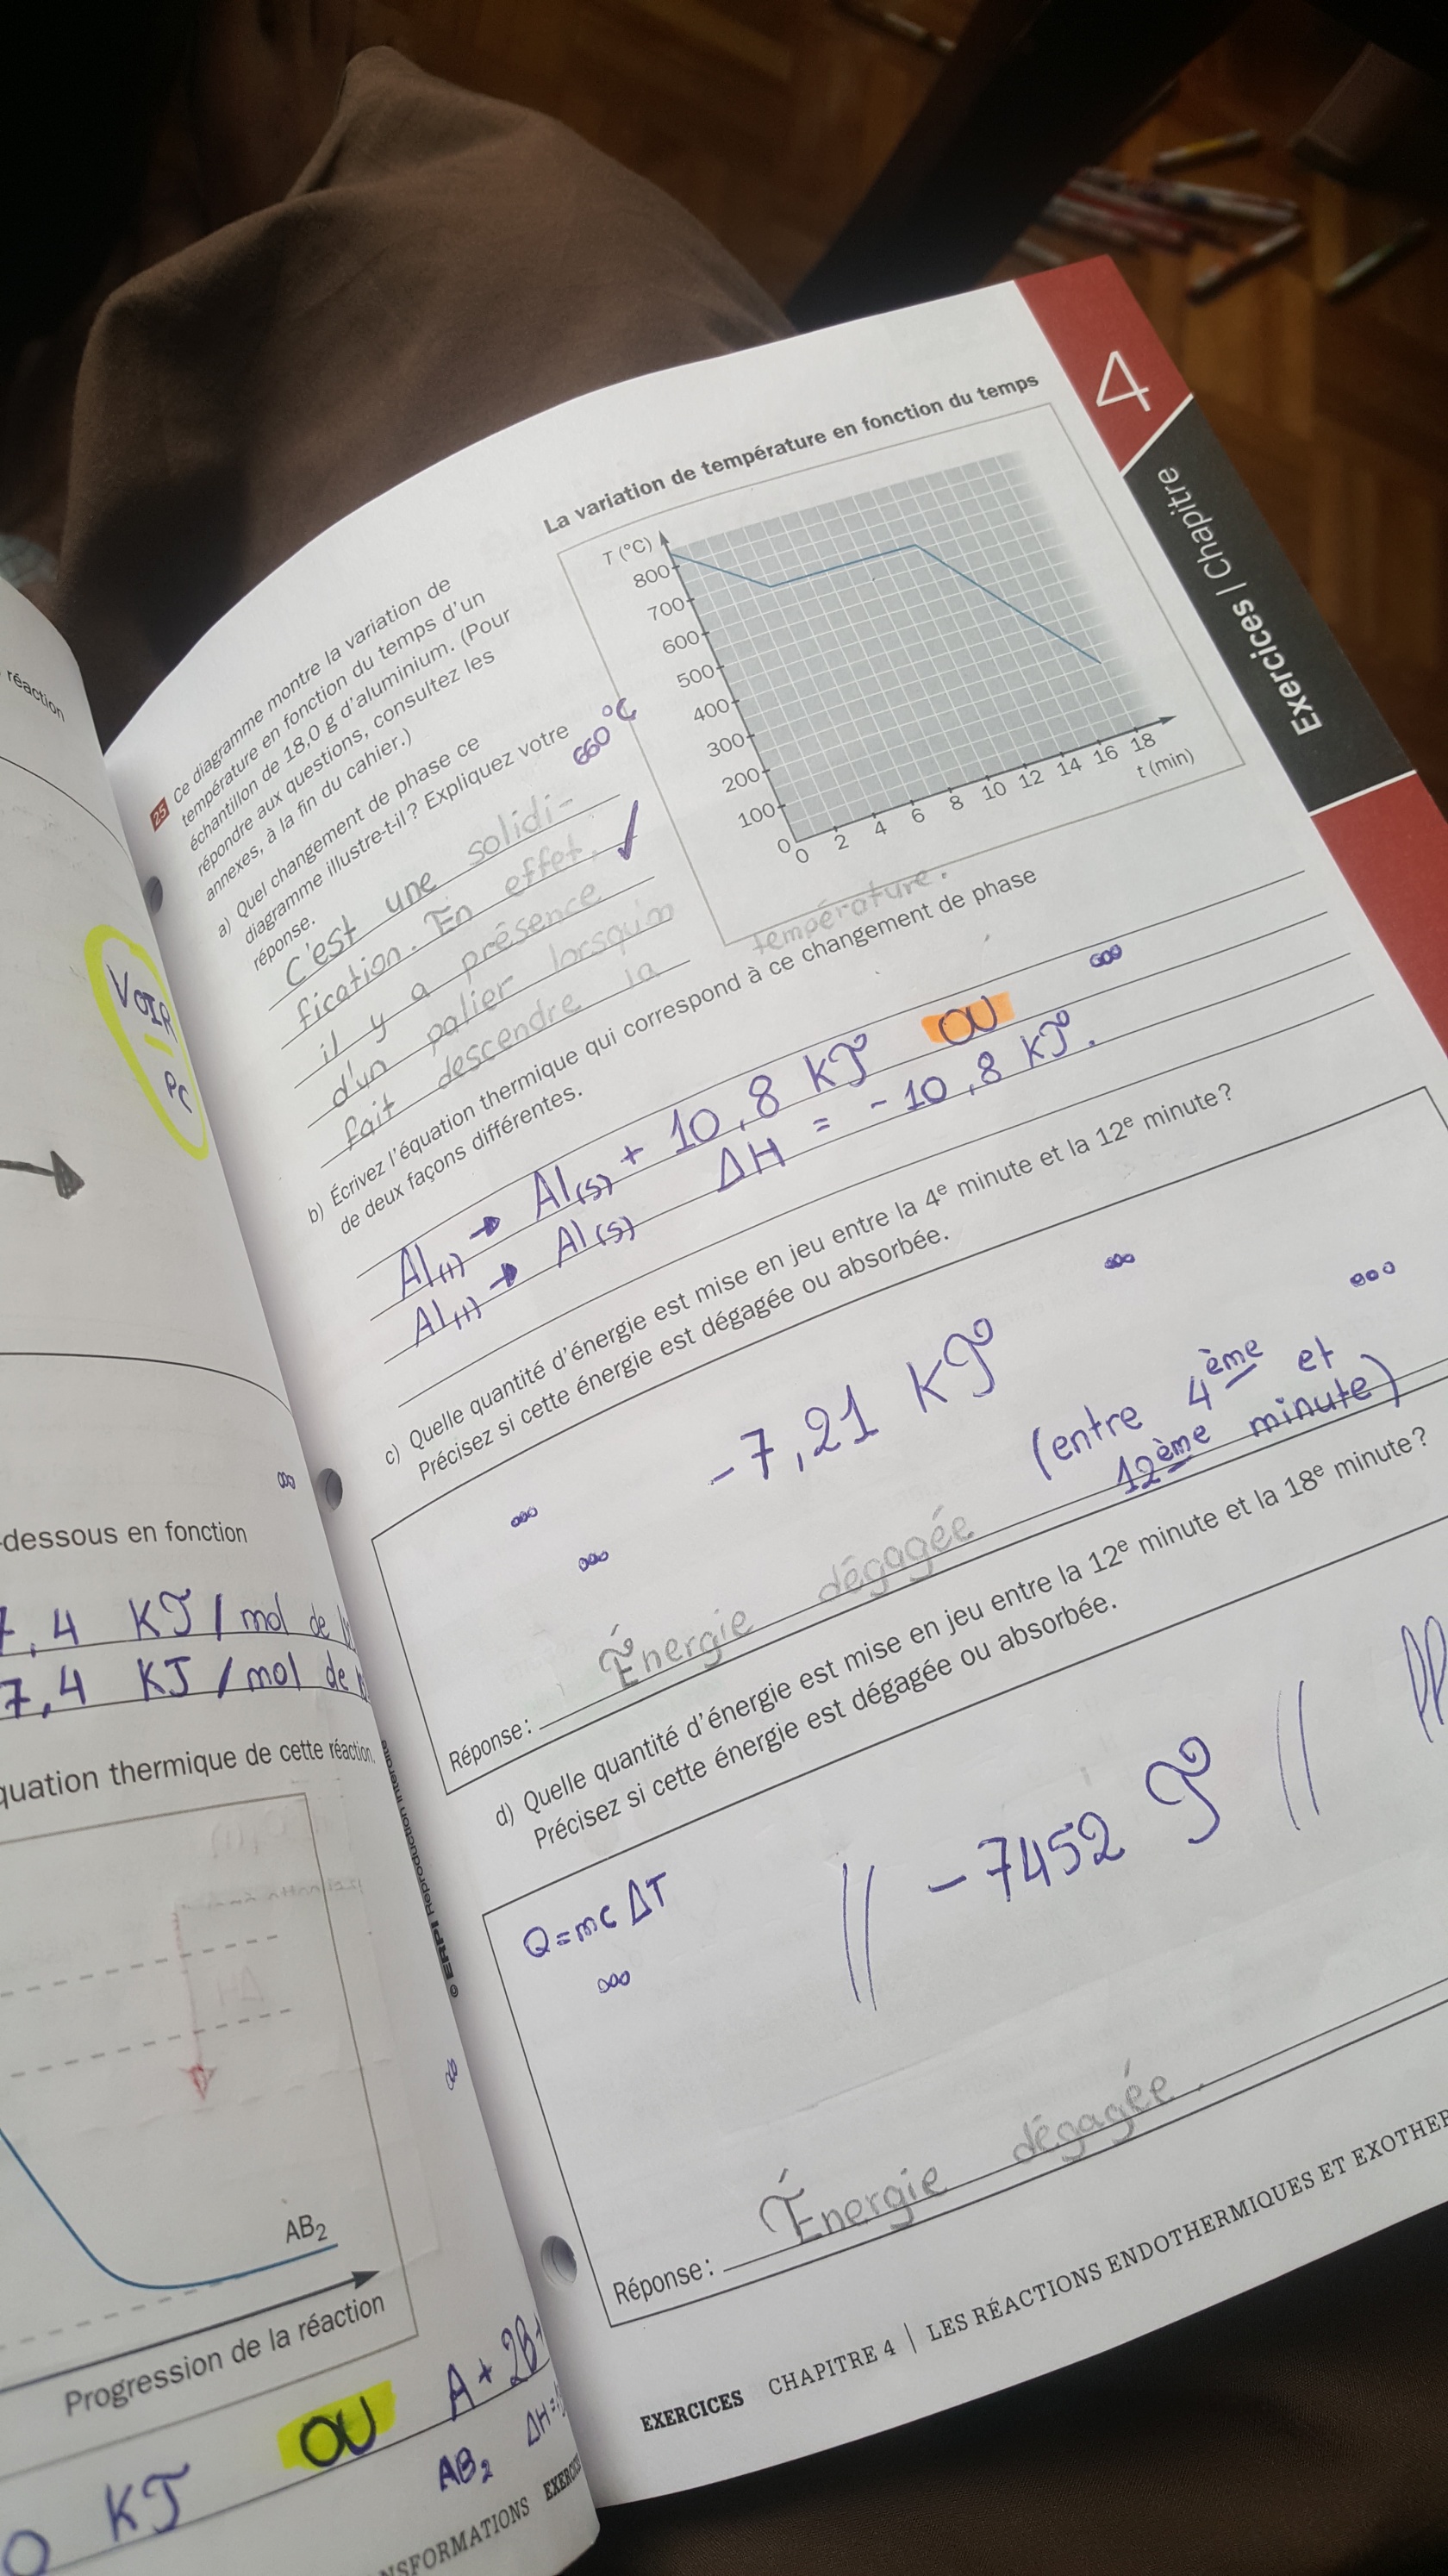 réaction
VOIR
PC
-dessous en fonction
7,4 KJ / mol de
7,4 KJ / mol de
quation thermique de cette réaction.
AB2
Progression de la réaction
KJ OU A + 2B
AB2 ΔH =
NSFORMATIONS EXERC
4
Exercices | Chapitre
25 Ce diagramme montre la variation de
température en fonction du temps d'un
échantillon de 18,0 g d'aluminium. (Pour
répondre aux questions, consultez les
annexes, à la fin du cahier.)
a) Quel changement de phase ce
diagramme illustre-t-il? Expliquez votre
réponse.
660°C
c'est une solidi-
fication. En effet,
il y a présence
d'un palier lorsqu'on
fait descendre la
température.
La variation de température en fonction du temps
T (°C)
800
700
600
500
400
300
200
100
0
0 2 4 6 8 10 12 14 16 18
t (min)
b) Écrivez l'équation thermique qui correspond à ce changement de phase
de deux façons différentes.
Al(l) → Al(s) + 10,8 KJ OU
Al(l) → Al(s) ΔH = -10,8 KJ.
c) Quelle quantité d'énergie est mise en jeu entre la 4e minute et la 12e minute?
Précisez si cette énergie est dégagée ou absorbée.
-7,21 KJ
(entre 4ème et
12ème minute)
Réponse: Énergie dégagée
d) Quelle quantité d'énergie est mise en jeu entre la 12e minute et la 18e minute?
Précisez si cette énergie est dégagée ou absorbée.
Q = mcΔT
// -7452 J //
Réponse: Énergie dégagée.
© ERPI Reproduction interdite
EXERCICES CHAPITRE 4 | LES RÉACTIONS ENDOTHERMIQUES ET EXOTHER